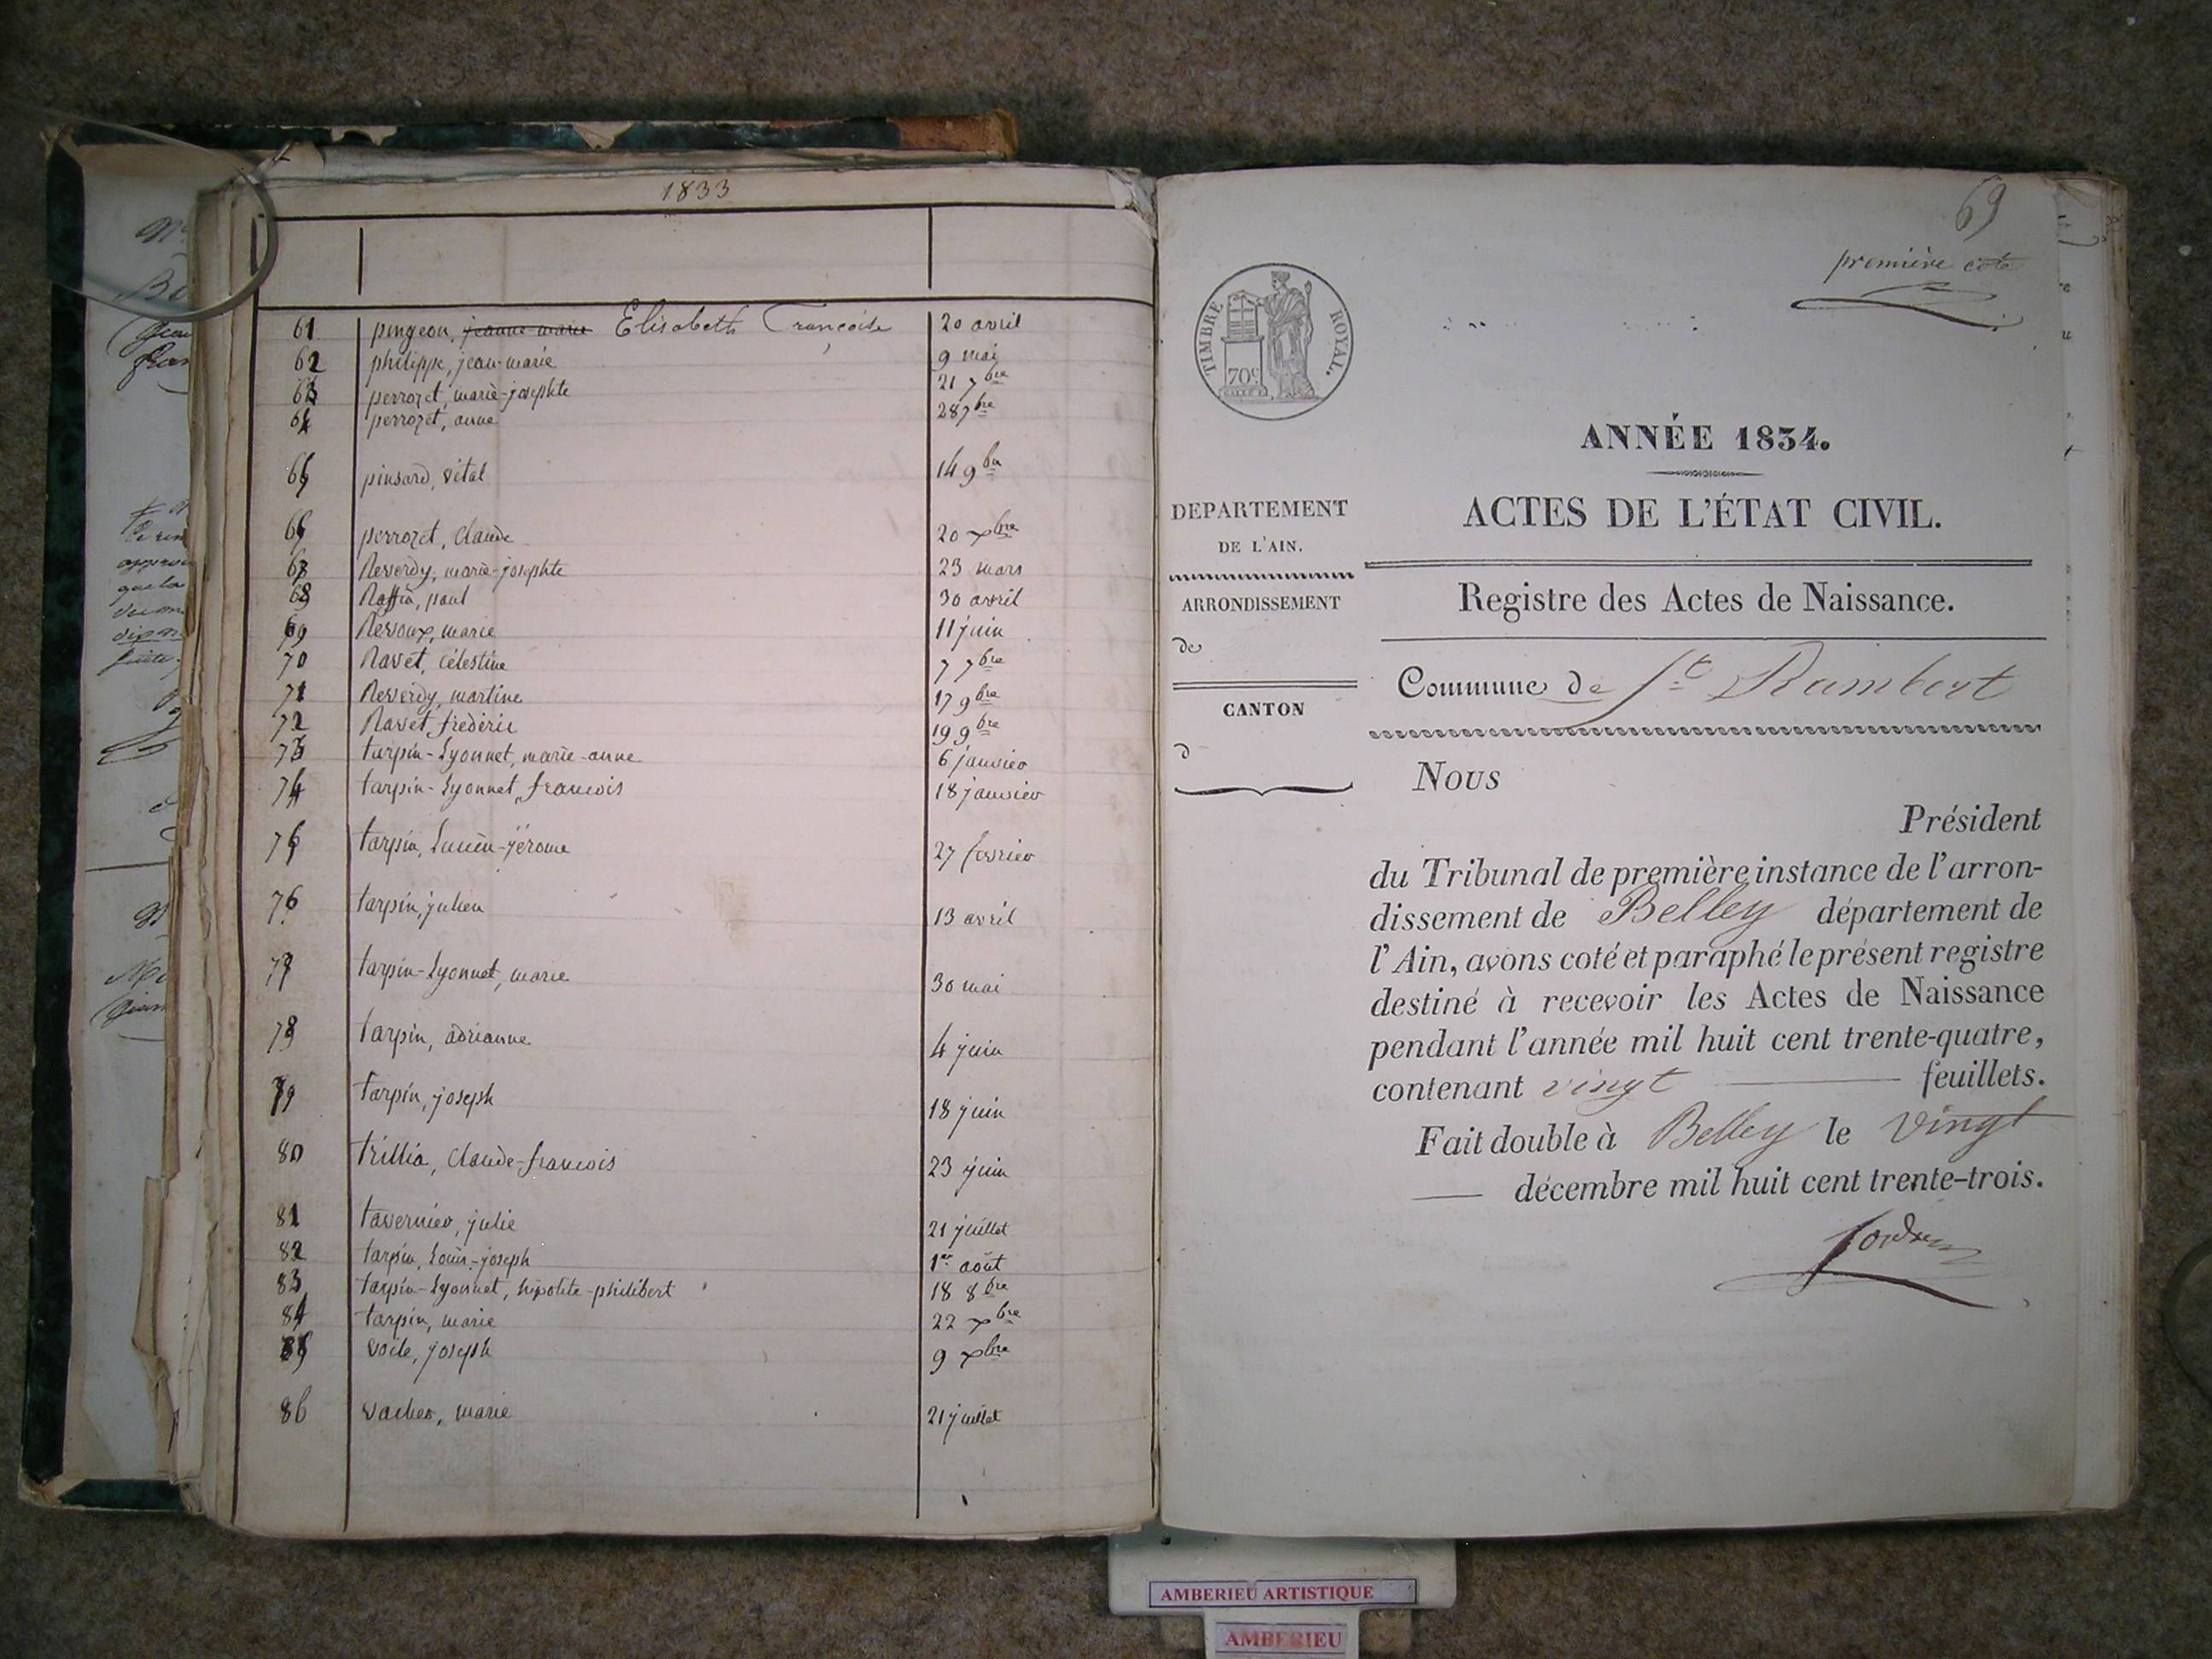 1833
61 pingeon, jeanne-marie Elisabeth Françoise 20 avril
62 philippe, jean-marie 9 mai
63 perrozet, marie-josephte 21 7bre
64 perrozet, anne 28 7bre
65 pinsard, vital 14 9bre
66 perrozet, Claude 20 xbre
67 Reverdy, marie-josephte 23 mars
68 Raffin, paul 30 avril
69 Revoux, marie 11 juin
70 Ravet, Célestine 7 7bre
71 Reverdy, martine 17 9bre
72 Ravet frédéric 19 9bre
73 tarpin-Lyonnet, marie-anne 6 janvier
74 tarpin-Lyonnet, francois 18 janvier
75 tarpin, Lucien-jérome 27 février
76 tarpin, julien 13 avril
77 tarpin-Lyonnet, marie 30 mai
78 tarpin, adrianne 4 juin
79 tarpin, joseph 18 juin
80 trillia, Claude-francois 23 juin
81 tavernier, julie 21 juillet
82 tarpin, Louis-joseph 1er août
83 tarpin-Lyonnet, hipolite-philibert 18 8bre
84 tarpin, marie 22 xbre
85 voile, joseph 9 xbre
86 vacher, marie 21 juillet
69
première cote
TIMBRE ROYAL.
70c
ANNÉE 1834.
DEPARTEMENT
DE L'AIN.
ARRONDISSEMENT
de
CANTON
d
ACTES DE L'ÉTAT CIVIL.
Registre des Actes de Naissance.
Commune de St Rambert
Nous
Président
du Tribunal de première instance de l'arron-
dissement de Belley département de
l'Ain, avons coté et paraphé le présent registre
destiné à recevoir les Actes de Naissance
pendant l'année mil huit cent trente-quatre,
contenant vingt feuillets.
Fait double à Belley le vingt
décembre mil huit cent trente-trois.
AMBERIEU ARTISTIQUE
AMBERIEU